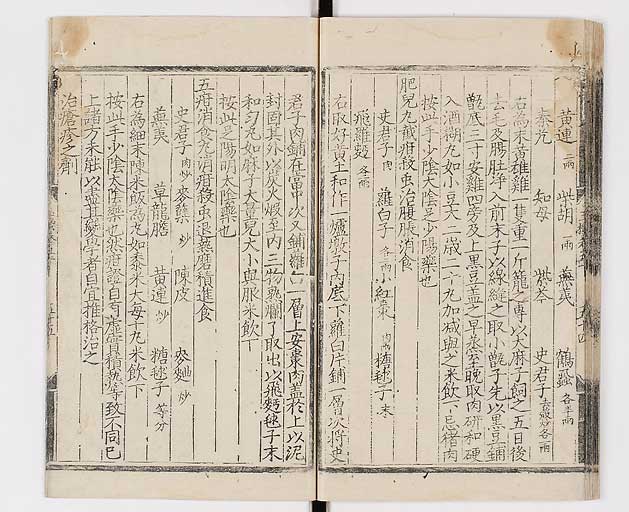 黄連 二兩 柴胡 一兩 蕪荑 鶴蝨 各半兩
秦艽 知母 柴芩 史君子 各兩
右為末黄雄雞一隻重一斤籠之專以大麻子飼之五日後
去毛及腸肚淨入前末子以線縫之取小甑子先以黒豆鋪
甑底三寸安雞四旁及上黒豆盖之早蒸至晚取肉研和硬
入酒糊丸如小豆大二歲二十丸加减與之米飲下忌猪肉
按此手少陰太陰足少陽藥也
肥兒丸截疳殺虫治腹脹消食
史君子 肉 蘿白子 各兩 小紅棗 糖毬子 末
飛羅麫 各兩
右取好黄土和作一爐墩子内底下蘿白斤鋪一層次將史
君子肉鋪在當中次又鋪蘿白一層上安棗肉盖於上以泥
封固其外以炭火煅至内三物熟爛了取出以飛麫毬子末
和匀丸如麻子大量兒大小與服米飲下
按此足陽明太陰藥也
五疳消食丸消疳殺虫退熱磨積進食
史君子 肉炒 麥糵 小炒 陳皮 麥麯 炒
蕪荑 草龍膽 黄連 炒 糖毬子 等分
右為細末陳米飯為丸如黍米大每十丸米飲下
按此手少陰太陰藥也然疳證自有虛實積熱等致不同已
上諸方未能以盡其變學者自宜推格治之
治瘡疹之劑